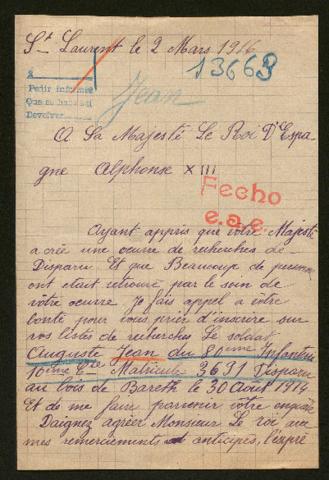 St Laurent le 2 Mars 1916
13663
A
Pedir informe
Que se
Devolver
Jean
A Sa Majesté Le Roi D'Espa
gne Alphonse XIII
Fecho
Ayant appris que votre Majesté
a crée une oeuvre de recherches de
Disparu. Et que Beaucoup de
ont était retrouvé par le soin de
vôtre oeuvre. Je fais appel a vôtre
bonté pour vous priez d'inscrire sur
vos listes de recherches Le soldat
Auguste Jean du 80ème Infanterie
10ème Cie Matricule 3691 Disparu
au bois de Bareth le 30 Août 1914
Et de me faire parvenir vôtre enquête
Daignez agréer Monsieur Le roi avec
mes remerciements anticipés, l'expré